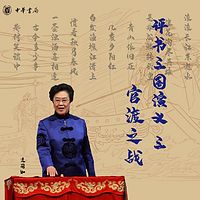 中華書局
评书三国演义 三
官渡之战
滚滚长江东逝水
浪花淘尽英雄
是非成败转头空
青山依旧在
几度夕阳红
白发渔樵江渚上
惯看秋月春风
一壶浊酒喜相逢
古今多少事
都付笑谈中